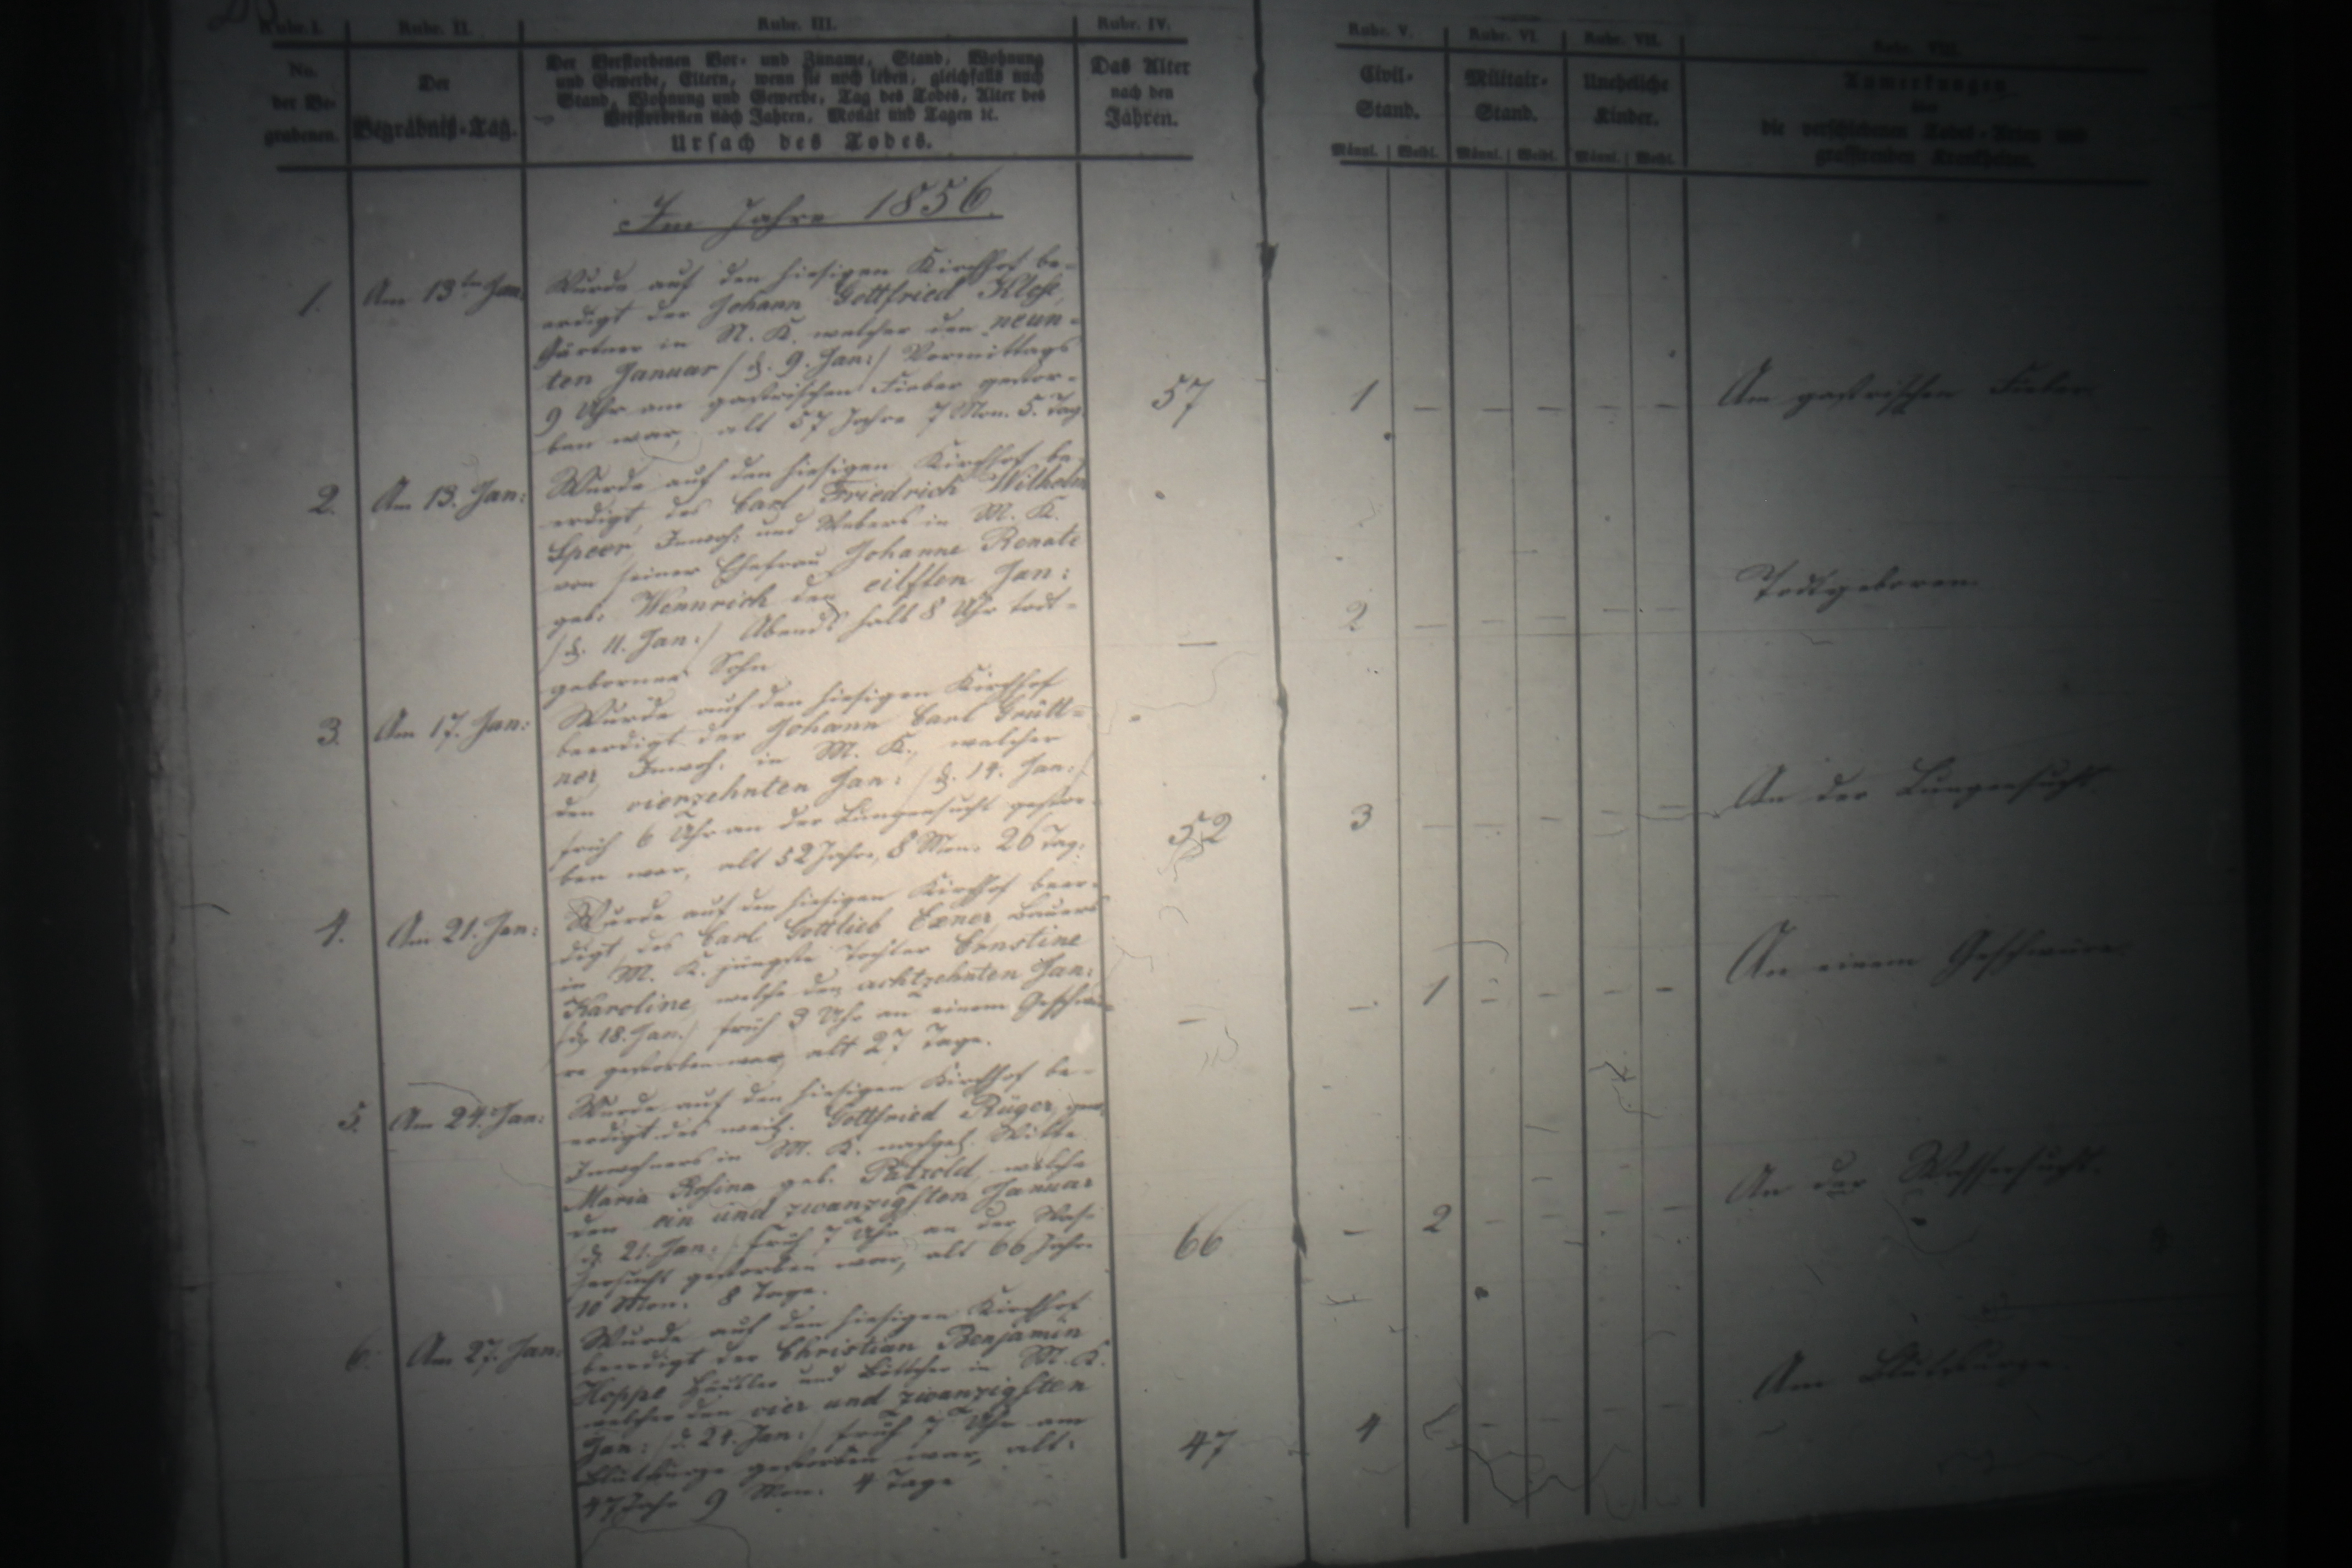 Rubr. I. Rubr. II. Rubr. III. Rubr. IV. Rubr. V. Rubr. VI. Rubr. VII. Rubr. VIII.
No. der Be-grabenen.
Der Begräbniß-Tag.
Der Verstorbenen Vor- und Zuname, Stand, Wohnung
und Gewerbe, Eltern, wenn sie noch leben, gleichfalls nach
Stand, Wohnung und Gewerbe, Tag des Todes, Alter des
Verstorbenen nach Jahren, Monat und Tagen ꝛc.
Ursach des Todes.
Das Alter
nach den
Jahren.
Civil-
Stand.
Militair-
Stand.
Uneheliche
Kinder.
Männl. Weibl. Männl. Weibl. Männl. Weibl.
Anmerkungen
über
die verschiedenen Todes-Arten und
grassirenden Krankheiten.
Im Jahre 1856.
1. Am 13ten Jan:
Wurde auf den hiesigen Kirchhof be-
erdigt der Johann Gottfried Klose,
Gärtner in N. K. welcher den neun-
ten Januar /d. 9. Jan:/ Vormittags
9 Uhr am gastrischen Fieber gestor-
ben war, alt 57 Jahre 7 Mon. 5. Tag.
57 1 – – – – –
Am gastrischen Fieber.
2. Am 13. Jan:
Wurde auf den hiesigen Kirchhof be-
erdigt, des Carl Friedrich Wilhelm
Speer, Inwoh: und Webers in M. K.
von seiner Ehefrau Johanne Renate
geb. Wennrich den eilften Jan:
/d. 11. Jan:/ Abends halb 8 Uhr todt-
geborner Sohn
— 2 – – – – –
Todtgeboren.
3. Am 17. Jan:
Wurde auf den hiesigen Kirchhof
beerdigt der Johann Carl Grütt-
ner, Inwoh. in M. K., welcher
den vierzehnten Jan: /d. 14. Jan:/
früh 6 Uhr an der Lungensucht gestor-
ben war, alt 52 Jahre, 8 Mon. 26 Tag.
52 3 – – – – –
An der Lungensucht.
4. Am 21. Jan:
Wurde auf den hiesigen Kirchhof beer-
digt, des Carl Gottlieb Exner, Bauers
in M. K. jüngste Tochter Ernstine
Karoline, welche den achtzehnten Jan:
/d. 18. Jan./ früh 3 Uhr an einem Geschwü-
re gestorben war, alt 27 Tage.
– – 1 – – – –
An einem Geschwüre
5. Am 24. Jan:
Wurde auf den hiesigen Kirchhof be-
erdigt des weil. Gottfried Rüger, gew.
Inwohners in M. K. nachgel. Wittwe
Maria Rosina geb. Pätzold, welche
den ein und zwanzigsten Januar
/d. 21. Jan:/ früh 7 Uhr an der Was-
sersucht gestorben war, alt 66 Jahr
10 Mon. 8 Tage.
66 – 2 – – – –
An der Wassersucht.
6. Am 27. Jan:
Wurde auf den hiesigen Kirchhof
beerdigt der Christian Benjamin
Hoppe Häusler und Böttcher in M. K.
welcher den vier und zwanzigsten
Jan: /d. 24. Jan:/ früh 7 Uhr am
gestorben war, alt:
47 Jahr 9 Mon. 4 Tage
47 4
Am